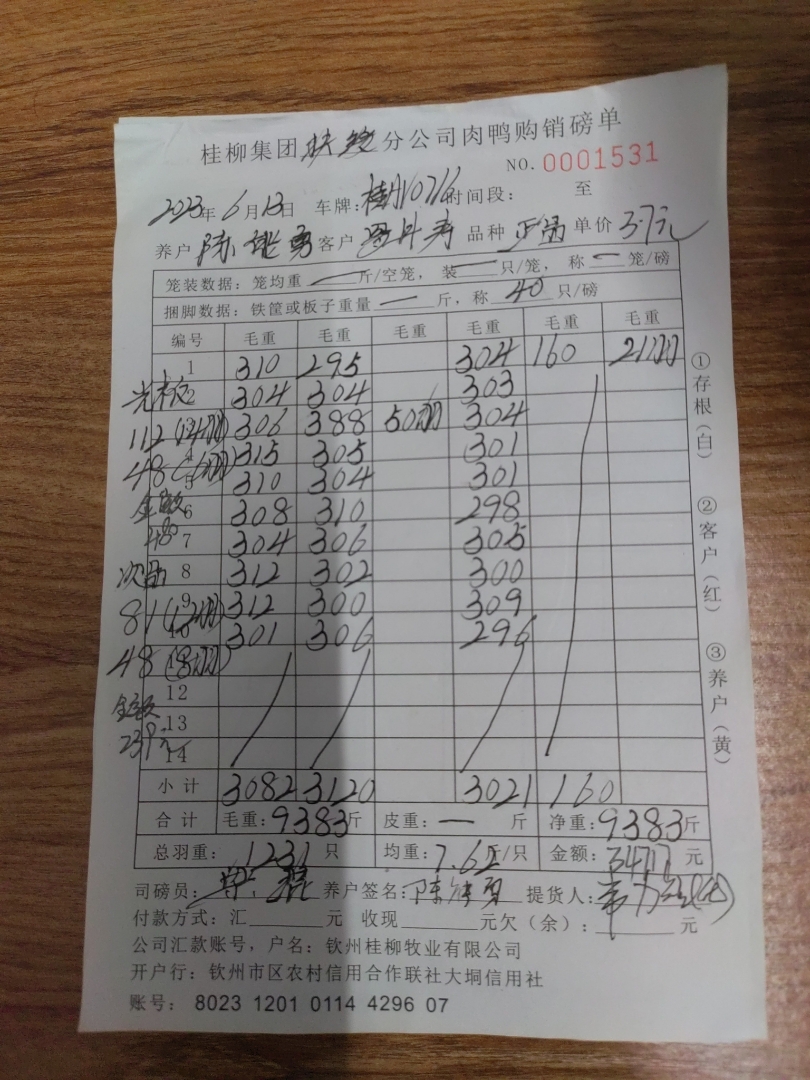 桂柳集团 分公司肉鸭购销磅单
NO. 0001531
2023年 6月13日 车牌: 时间段: 至
养户 陈 勇 客户 品种 正品 单价 3.7元
笼装数据: 笼均重 一 斤/空笼, 装 一 只/笼, 称 一 笼/磅
捆脚数据: 铁筐或板子重量 一 斤, 称 40 只/磅
编号 毛重 毛重 毛重 毛重 毛重 毛重
1 310 295 304 160 21羽
2 304 304 303
306 388 50羽 304
4 315 305 301
5 310 304 301
6 308 310 298
7 304 306 305
8 312 302 300
9 312 300 309
10 301 306 296
12
13
14
112 (14羽)
48 (6羽)
金额
480
次品
81 (12羽)
48 (8羽)
金额
239元
小计 3082 3120 3021 160
合计 毛重: 9383斤 皮重: 一 斤 净重: 9383斤
总羽重: 1231 只 均重: 7.62斤/只 金额: 34717 元
司磅员: 养户签名: 陈 勇 提货人:
付款方式: 汇 元 收现 元欠（余）: 元
公司汇款账号, 户名: 钦州桂柳牧业有限公司
开户行: 钦州市区农村信用合作联社大垌信用社
账号: 8023 1201 0114 4296 07
①存根（白）
②客户（红）
③养户（黄）